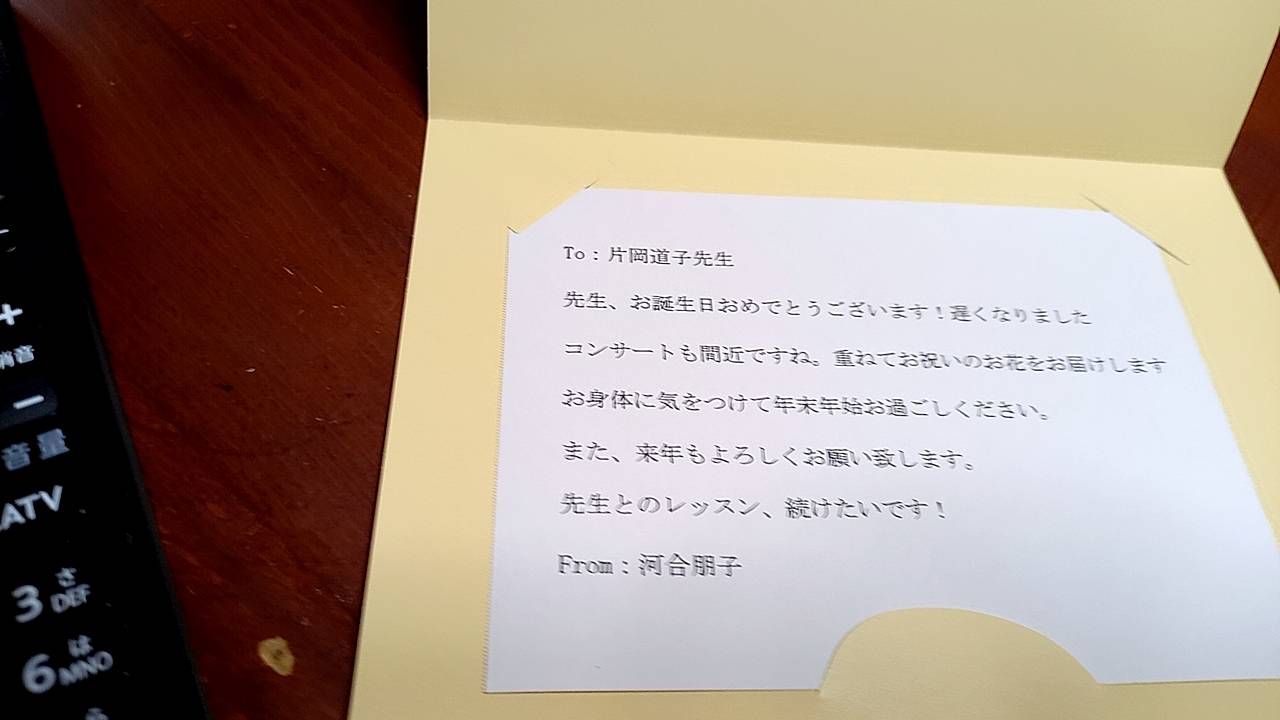 To：片岡道子先生
先生、お誕生日おめでとうございます！遅くなりました
コンサートも間近ですね。重ねてお祝いのお花をお届けします
お身体に気をつけて年末年始お過ごしください。
また、来年もよろしくお願い致します。
先生とのレッスン、続けたいです！
From：河合朋子
+
消音
−
音量
ATV
3 さ DEF
6 は MNO